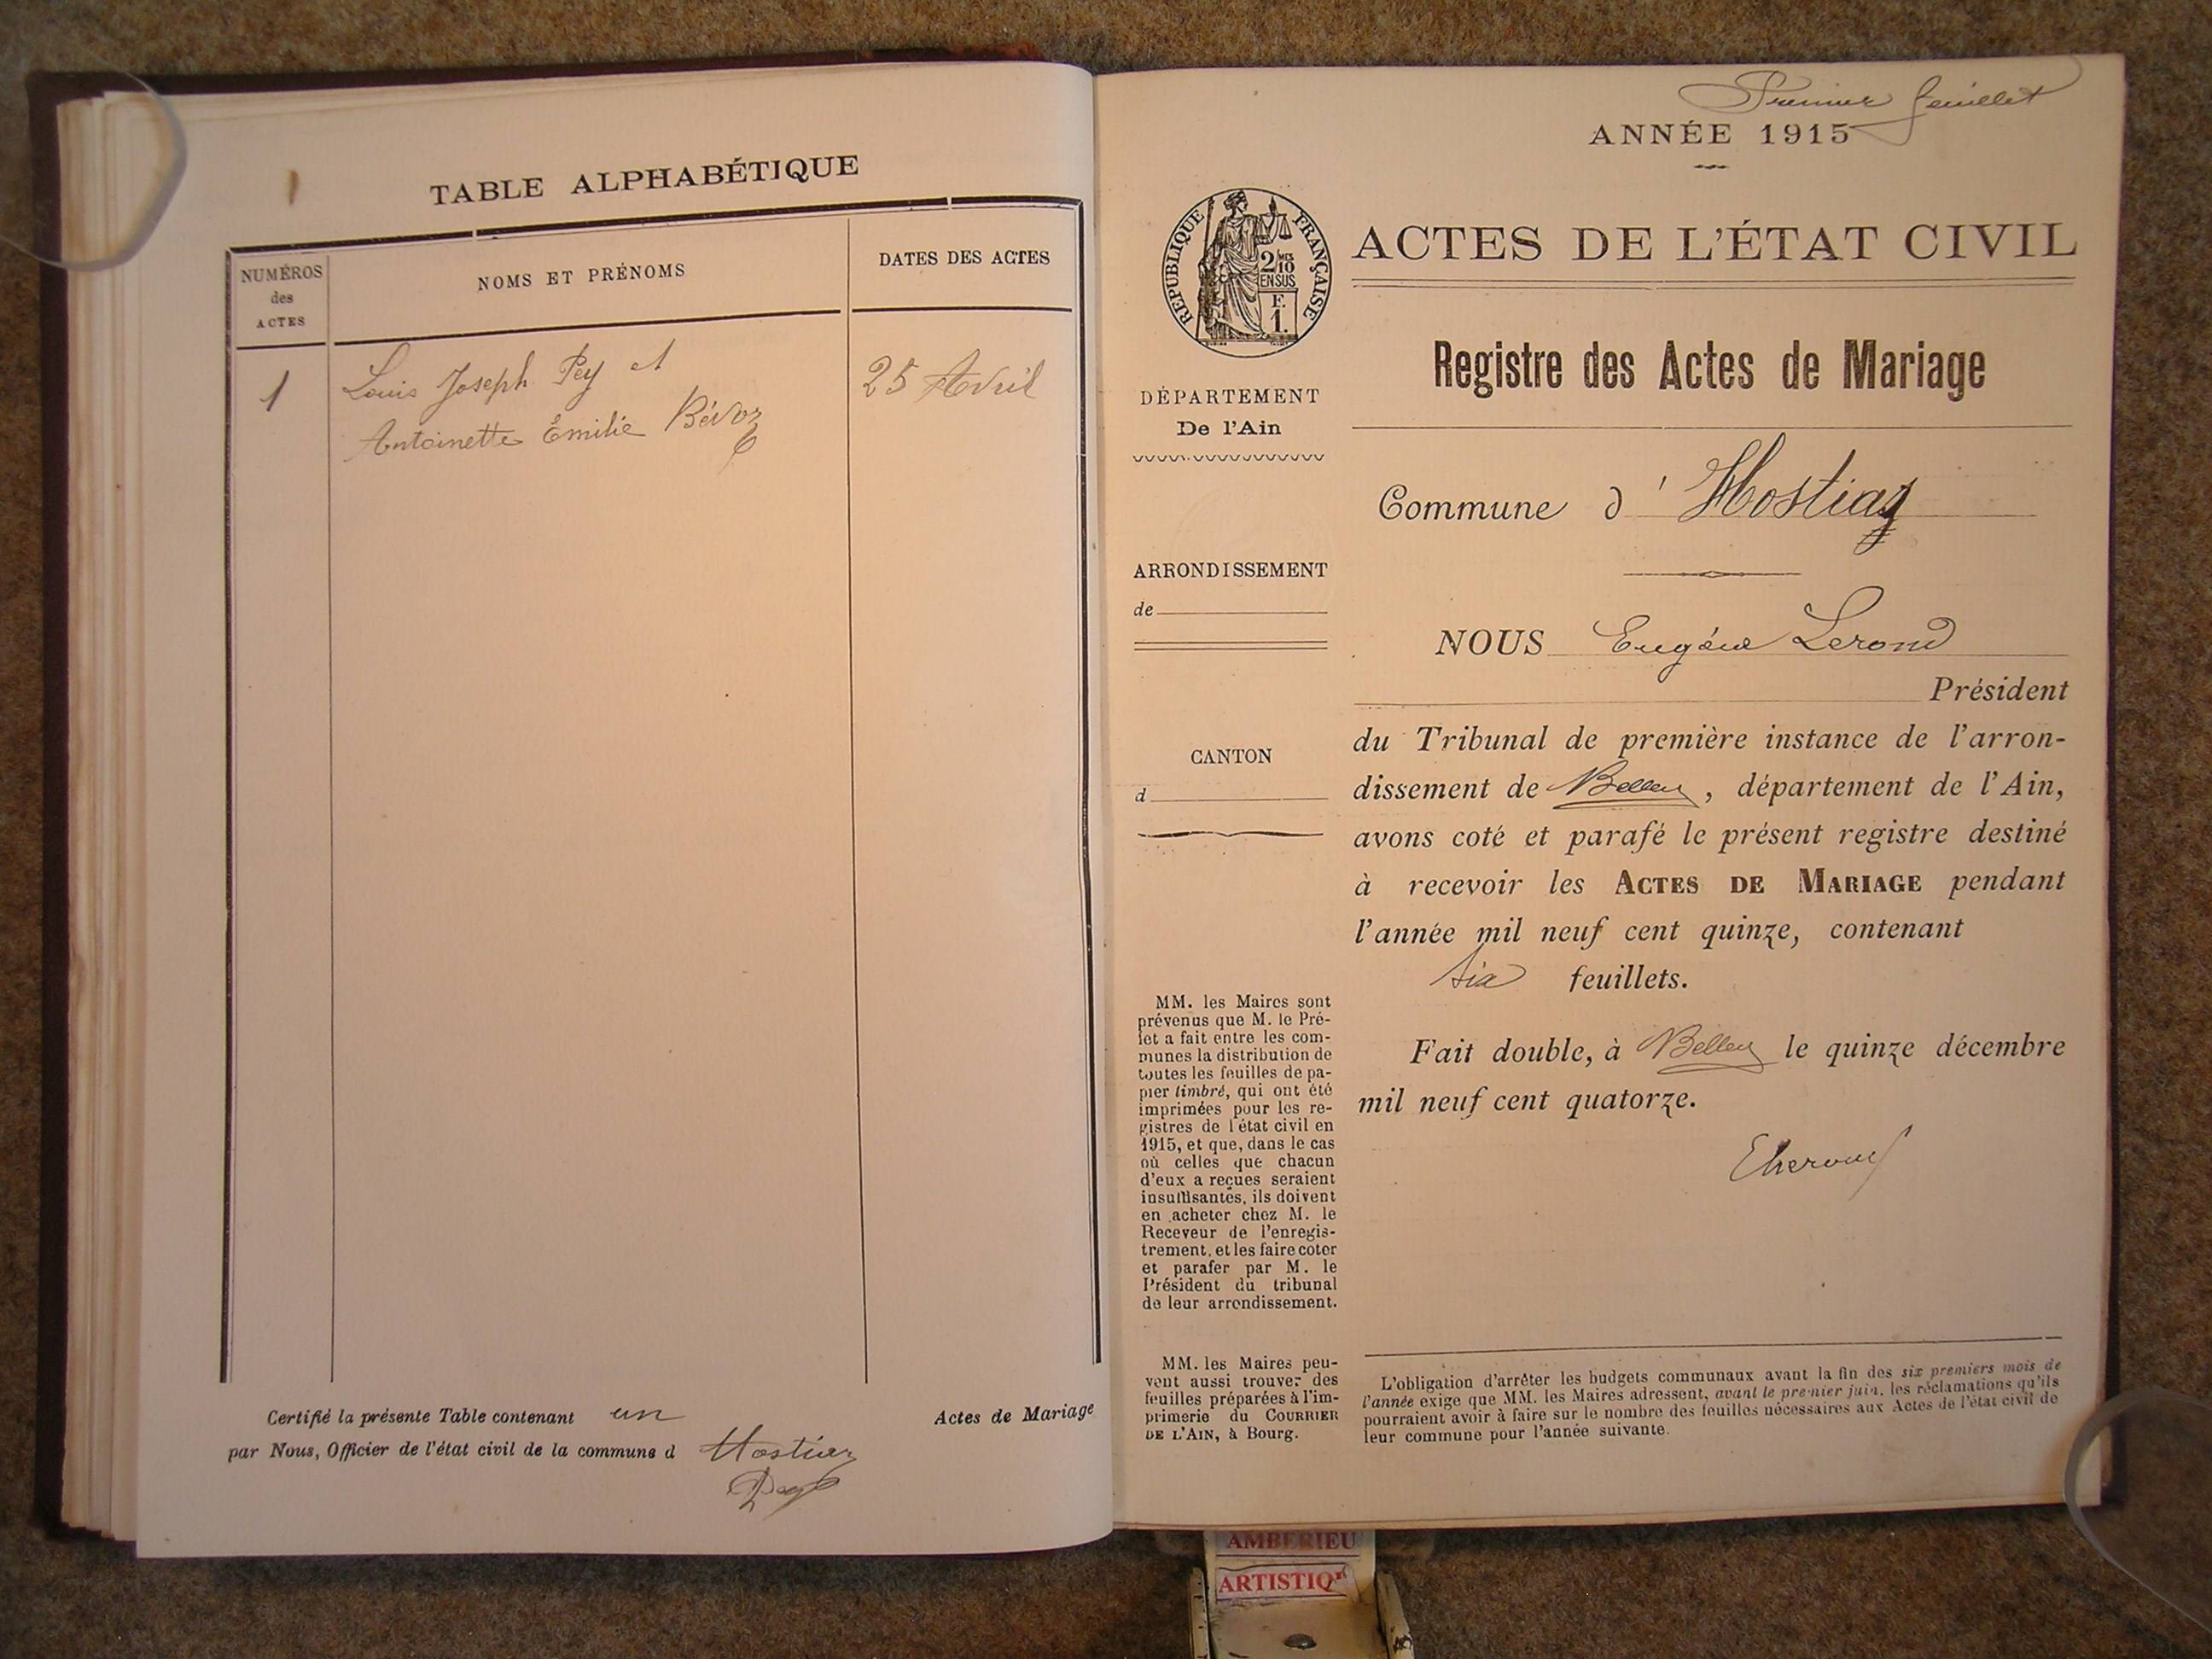 TABLE ALPHABÉTIQUE
NUMÉROS
des
ACTES
NOMS ET PRÉNOMS
DATES DES ACTES
1
Louis Joseph Pey et
25 Avril
Antoinette Émilie Bévoz
Certifié la présente Table contenant un Actes de Mariage
par Nous, Officier de l'état civil de la commune d Hostiaz
Premier feuillet
ANNÉE 1915
RÉPUBLIQUE FRANÇAISE
2 MES
10
EN SUS
F.
1.
ACTES DE L'ÉTAT CIVIL
Registre des Actes de Mariage
DÉPARTEMENT
De l'Ain
Commune d' Hostiaz
ARRONDISSEMENT
de
NOUS Eugène Lerond
Président
du Tribunal de première instance de l'arron-
CANTON
d
dissement de Belley, département de l'Ain,
avons coté et parafé le présent registre destiné
à recevoir les ACTES DE MARIAGE pendant
l'année mil neuf cent quinze, contenant
six feuillets.
Fait double, à Belley le quinze décembre
mil neuf cent quatorze.
MM. les Maires sont
prévenus que M. le Pré-
fet a fait entre les com-
munes la distribution de
toutes les feuilles de pa-
pier timbré, qui ont été
imprimées pour les re-
gistres de l'état civil en
1915, et que, dans le cas
où celles que chacun
d'eux a reçues seraient
insuffisantes, ils doivent
en acheter chez M. le
Receveur de l'enregis-
trement, et les faire coter
et parafer par M. le
Président du tribunal
de leur arrondissement.
MM. les Maires peu-
vent aussi trouver des
feuilles préparées à l'im-
primerie du COURRIER
DE L'AIN, à Bourg.
L'obligation d'arrêter les budgets communaux avant la fin des six premiers mois de
l'année exige que MM. les Maires adressent, avant le premier juin, les réclamations qu'ils
pourraient avoir à faire sur le nombre des feuilles nécessaires aux Actes de l'état civil de
leur commune pour l'année suivante.
AMBERIEU
ARTISTIQ